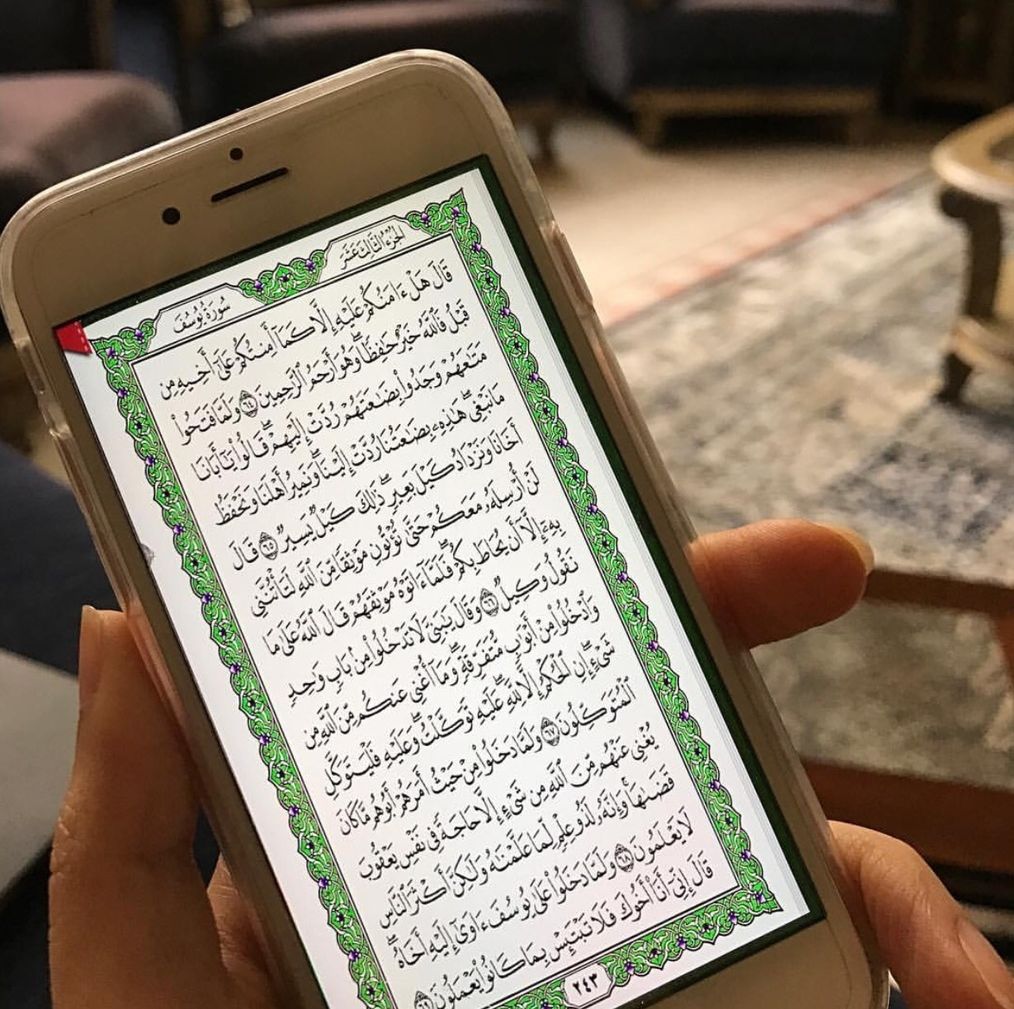 الجزء الثالث عشر
سورة يوسف
قَالَ هَلْ ءَامَنُكُمْ عَلَيْهِ إِلَّا كَمَآ أَمِنتُكُمْ عَلَىٰٓ أَخِيهِ مِن
قَبْلُ فَٱللَّهُ خَيْرٌ حَٰفِظًا وَهُوَ أَرْحَمُ ٱلرَّٰحِمِينَ ٦٤ وَلَمَّا فَتَحُوا۟
مَتَٰعَهُمْ وَجَدُوا۟ بِضَٰعَتَهُمْ رُدَّتْ إِلَيْهِمْ قَالُوا۟ يَٰٓأَبَانَا
مَا نَبْغِى هَٰذِهِۦ بِضَٰعَتُنَا رُدَّتْ إِلَيْنَا وَنَمِيرُ أَهْلَنَا وَنَحْفَظُ
أَخَانَا وَنَزْدَادُ كَيْلَ بَعِيرٍ ذَٰلِكَ كَيْلٌ يَسِيرٌ ٦٥ قَالَ
لَنْ أُرْسِلَهُۥ مَعَكُمْ حَتَّىٰ تُؤْتُونِ مَوْثِقًا مِّنَ ٱللَّهِ لَتَأْتُنَّنِى
بِهِۦٓ إِلَّآ أَن يُحَاطَ بِكُمْ فَلَمَّآ ءَاتَوْهُ مَوْثِقَهُمْ قَالَ ٱللَّهُ عَلَىٰ مَا
نَقُولُ وَكِيلٌ ٦٦ وَقَالَ يَٰبَنِىَّ لَا تَدْخُلُوا۟ مِنۢ بَابٍ وَٰحِدٍ
وَٱدْخُلُوا۟ مِنْ أَبْوَٰبٍ مُّتَفَرِّقَةٍ وَمَآ أُغْنِى عَنكُم مِّنَ ٱللَّهِ مِن
شَىْءٍ إِنِ ٱلْحُكْمُ إِلَّا لِلَّهِ عَلَيْهِ تَوَكَّلْتُ وَعَلَيْهِ فَلْيَتَوَكَّلِ
ٱلْمُتَوَكِّلُونَ ٦٧ وَلَمَّا دَخَلُوا۟ مِنْ حَيْثُ أَمَرَهُمْ أَبُوهُم مَّا كَانَ
يُغْنِى عَنْهُم مِّنَ ٱللَّهِ مِن شَىْءٍ إِلَّا حَاجَةً فِى نَفْسِ يَعْقُوبَ
قَضَىٰهَا وَإِنَّهُۥ لَذُو عِلْمٍ لِّمَا عَلَّمْنَٰهُ وَلَٰكِنَّ أَكْثَرَ ٱلنَّاسِ
لَا يَعْلَمُونَ ٦٨ وَلَمَّا دَخَلُوا۟ عَلَىٰ يُوسُفَ ءَاوَىٰٓ إِلَيْهِ أَخَاهُ
قَالَ إِنِّىٓ أَنَا۠ أَخُوكَ فَلَا تَبْتَئِسْ بِمَا كَانُوا۟ يَعْمَلُونَ ٦٩
٢٤٣